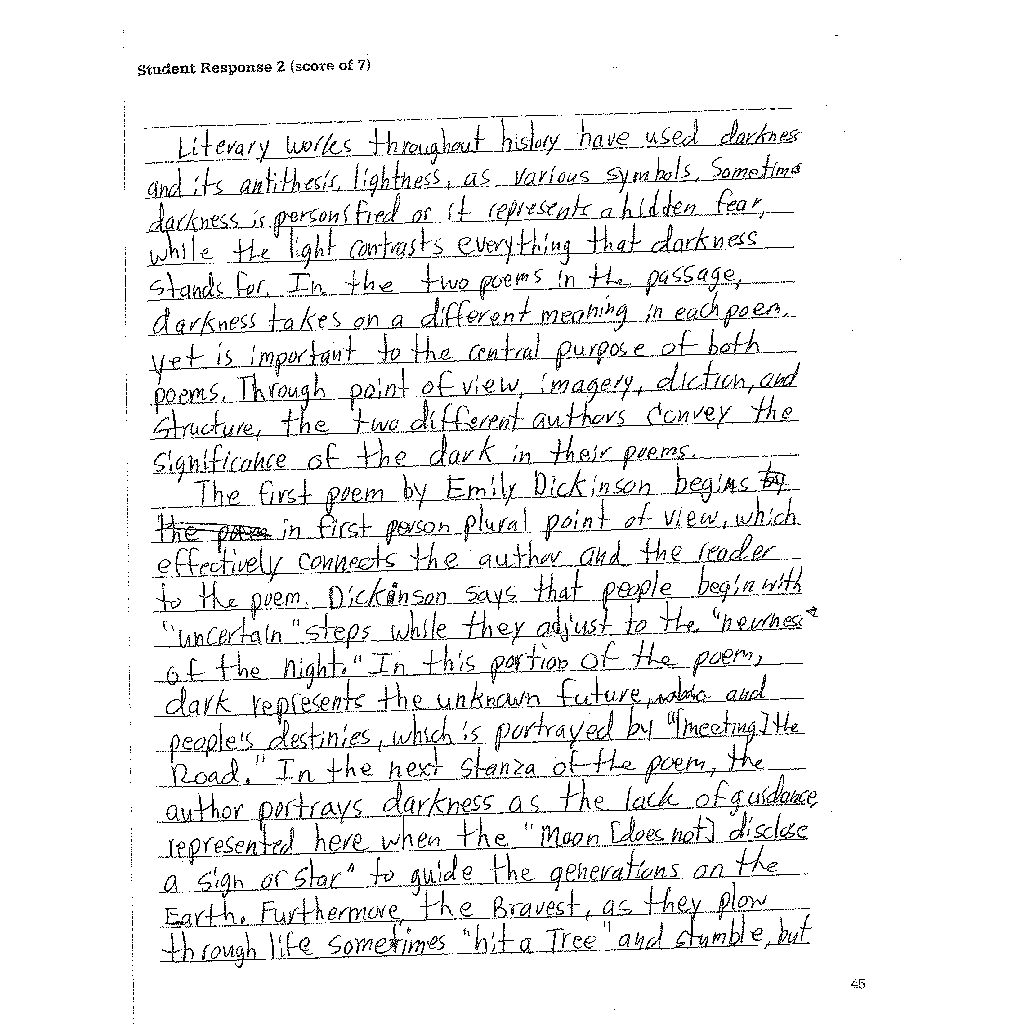 Student Response 2 (score of 7)
Literary works throughout history have used darkness
and its antithesis, lightness, as various symbols. Sometims
darkness is personified or it represents a hidden fear,
while the light contrasts everything that darkness
stands for. In the two poems in the passage,
darkness takes on a different meaning in each poem.
yet is important to the central purpose of both
poems. Through point of view, imagery, diction, and
structure, the two different authors convey the
significance of the dark in their poems.
The first poem by Emily Dickinson begins by
the poem in first person plural point of view, which
effectively connects the author and the reader
to the poem. Dickinson says that people begin with
"uncertain" steps while they adjust to the "newness
of the night." In this portion of the poem,
dark represents the unknown future, and
people's destinies, which is portrayed by "[meeting] the
Road." In the next stanza of the poem, the
author portrays darkness as the lack of guidance
represented here when the "Moon [does not] disclose
a sign or Star" to guide the generations on the
Earth. Furthermore, the Bravest, as they plow
through life sometimes "hit a Tree" and stumble, but
45